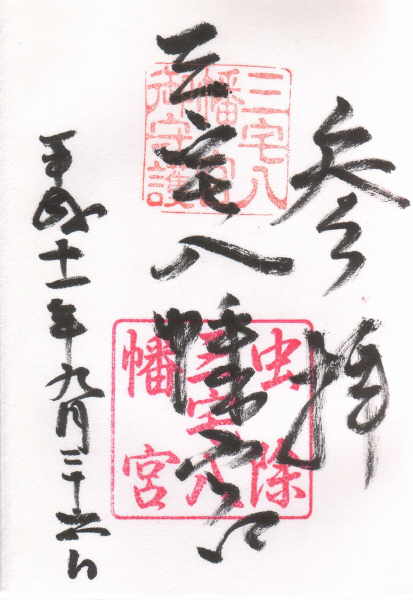 参拝
三宅八幡宮
平成十一年九月二十六日
三宅八
幡宮
御守護
虫除
三宅八
幡宮